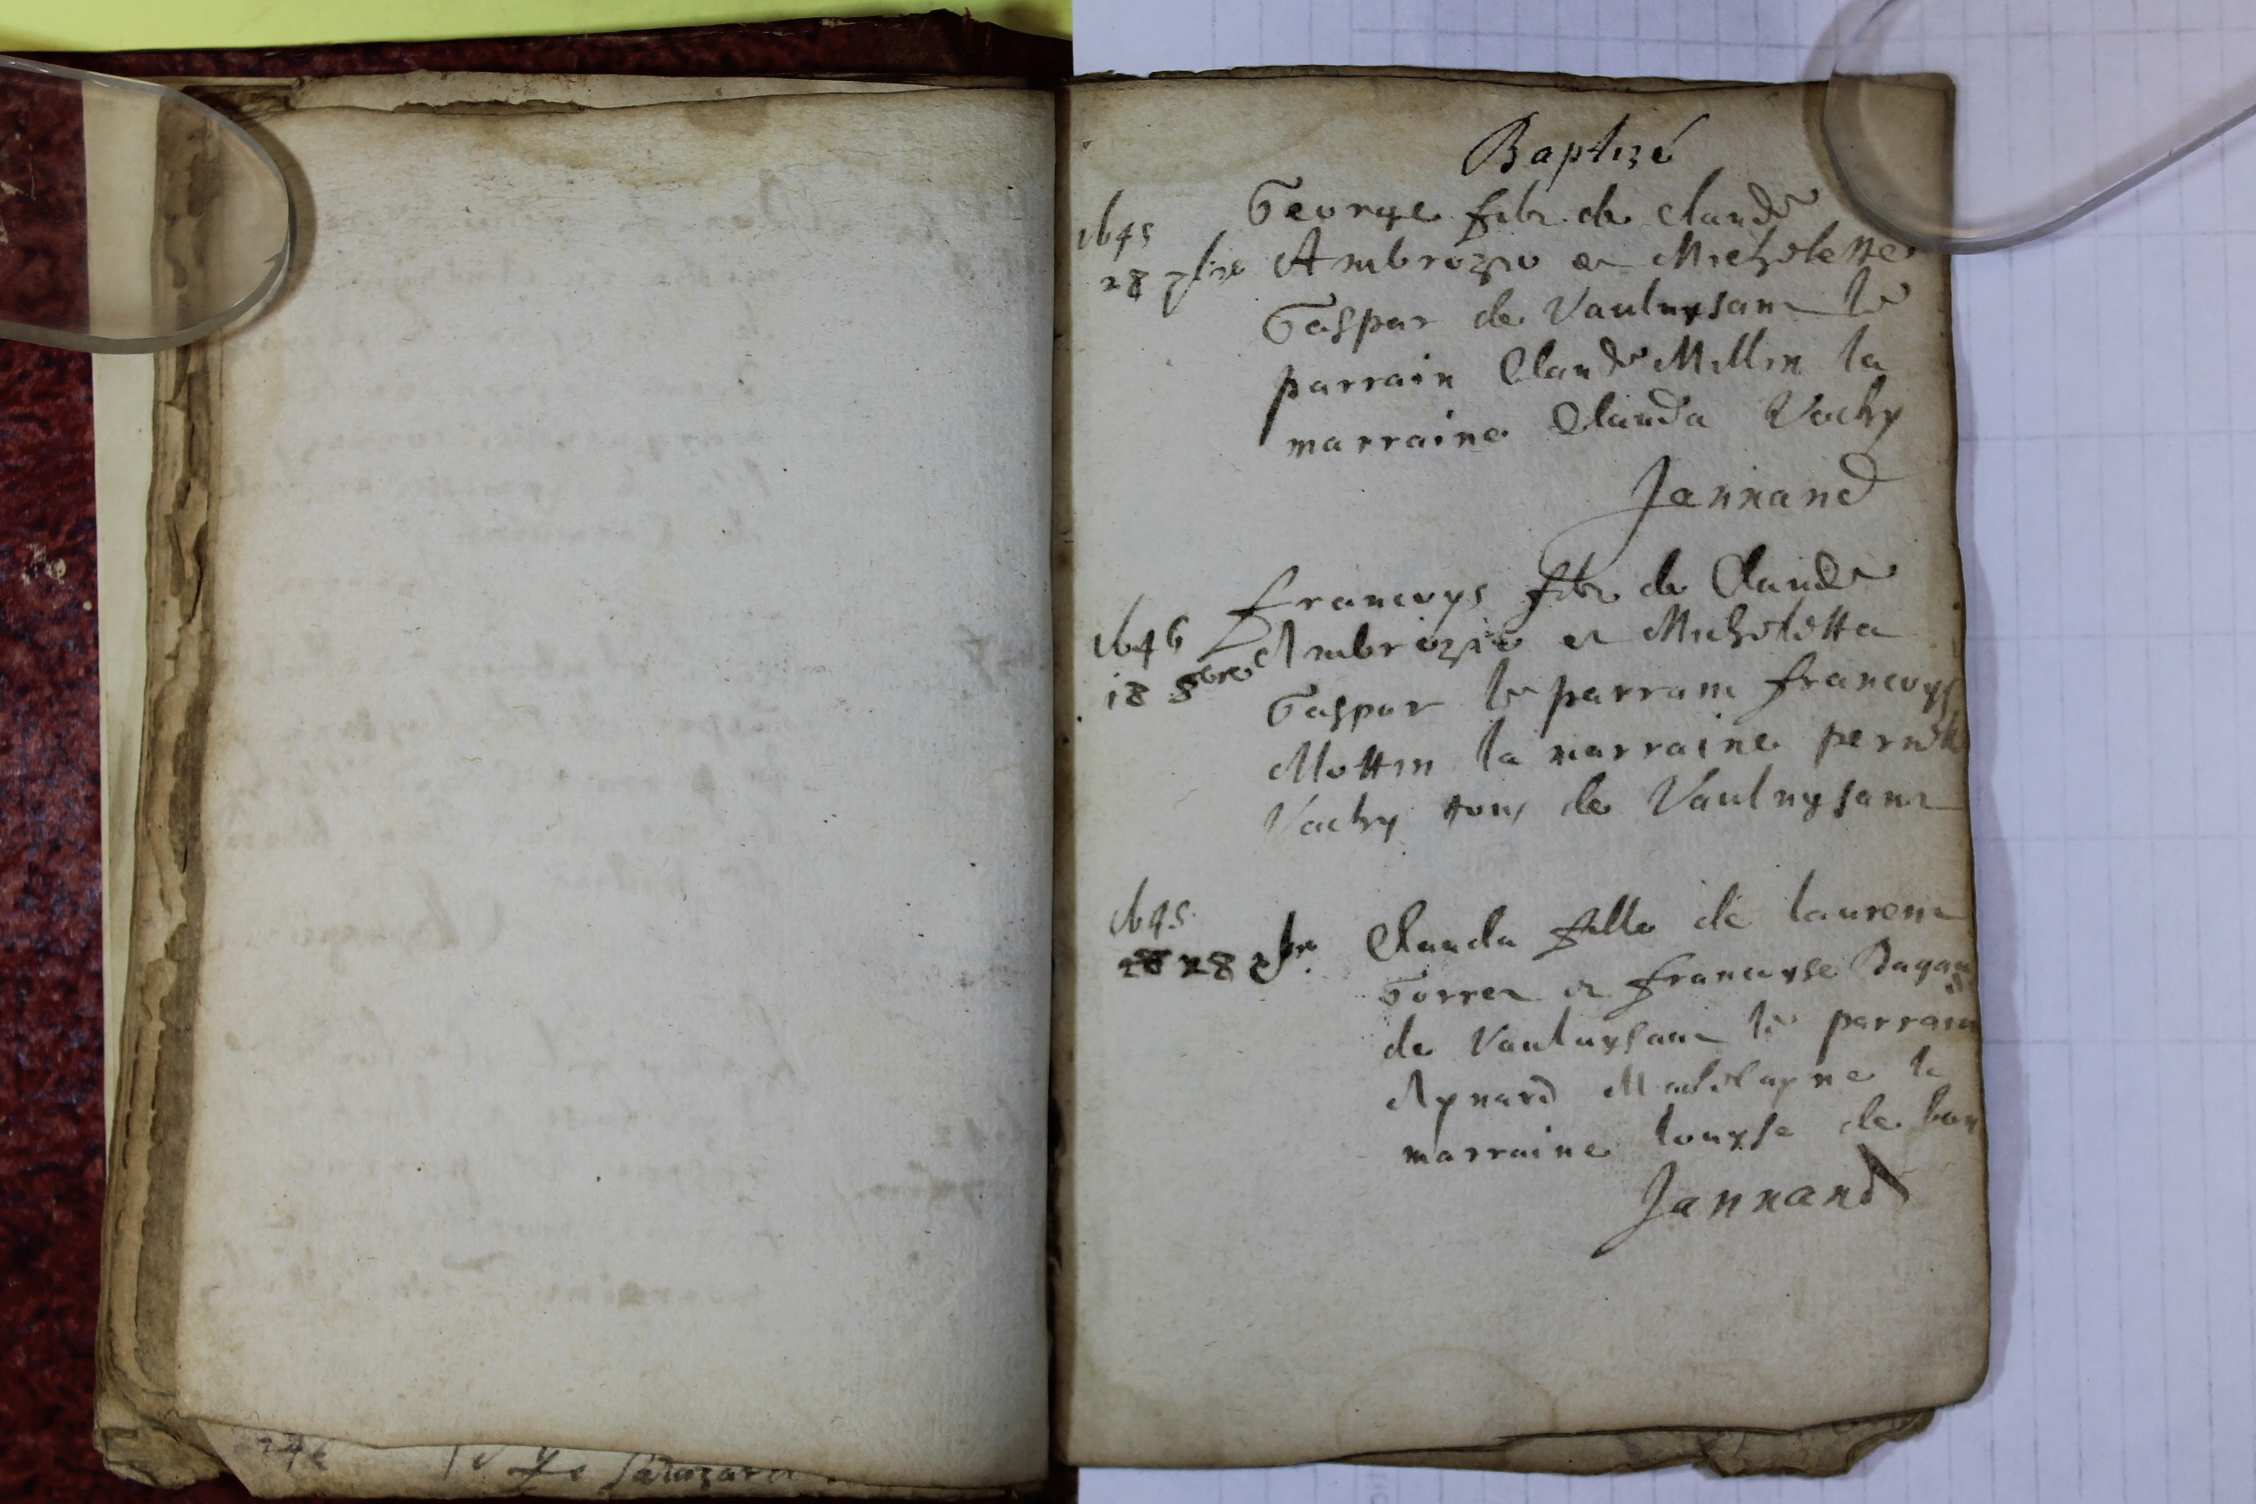 Baptizé
1645
28 7bre
George filz de Claude
Ambrozio et Micholette
Gaspar de Vauluysant le
parrain Claude Millin la
marraine Clauda Vachy
Jannand
1646
18 8bre
francoys filz de Claude
Ambrozio et Micholetta
Gaspar le parrain francoys
Mottin la marraine
Vachy tous de Vauluysant
1645
28
Clauda fille de laurent
Gorret et francoyse
de Vauluysant le parrain
Aynard la
marraine louyse de bon
Jannand